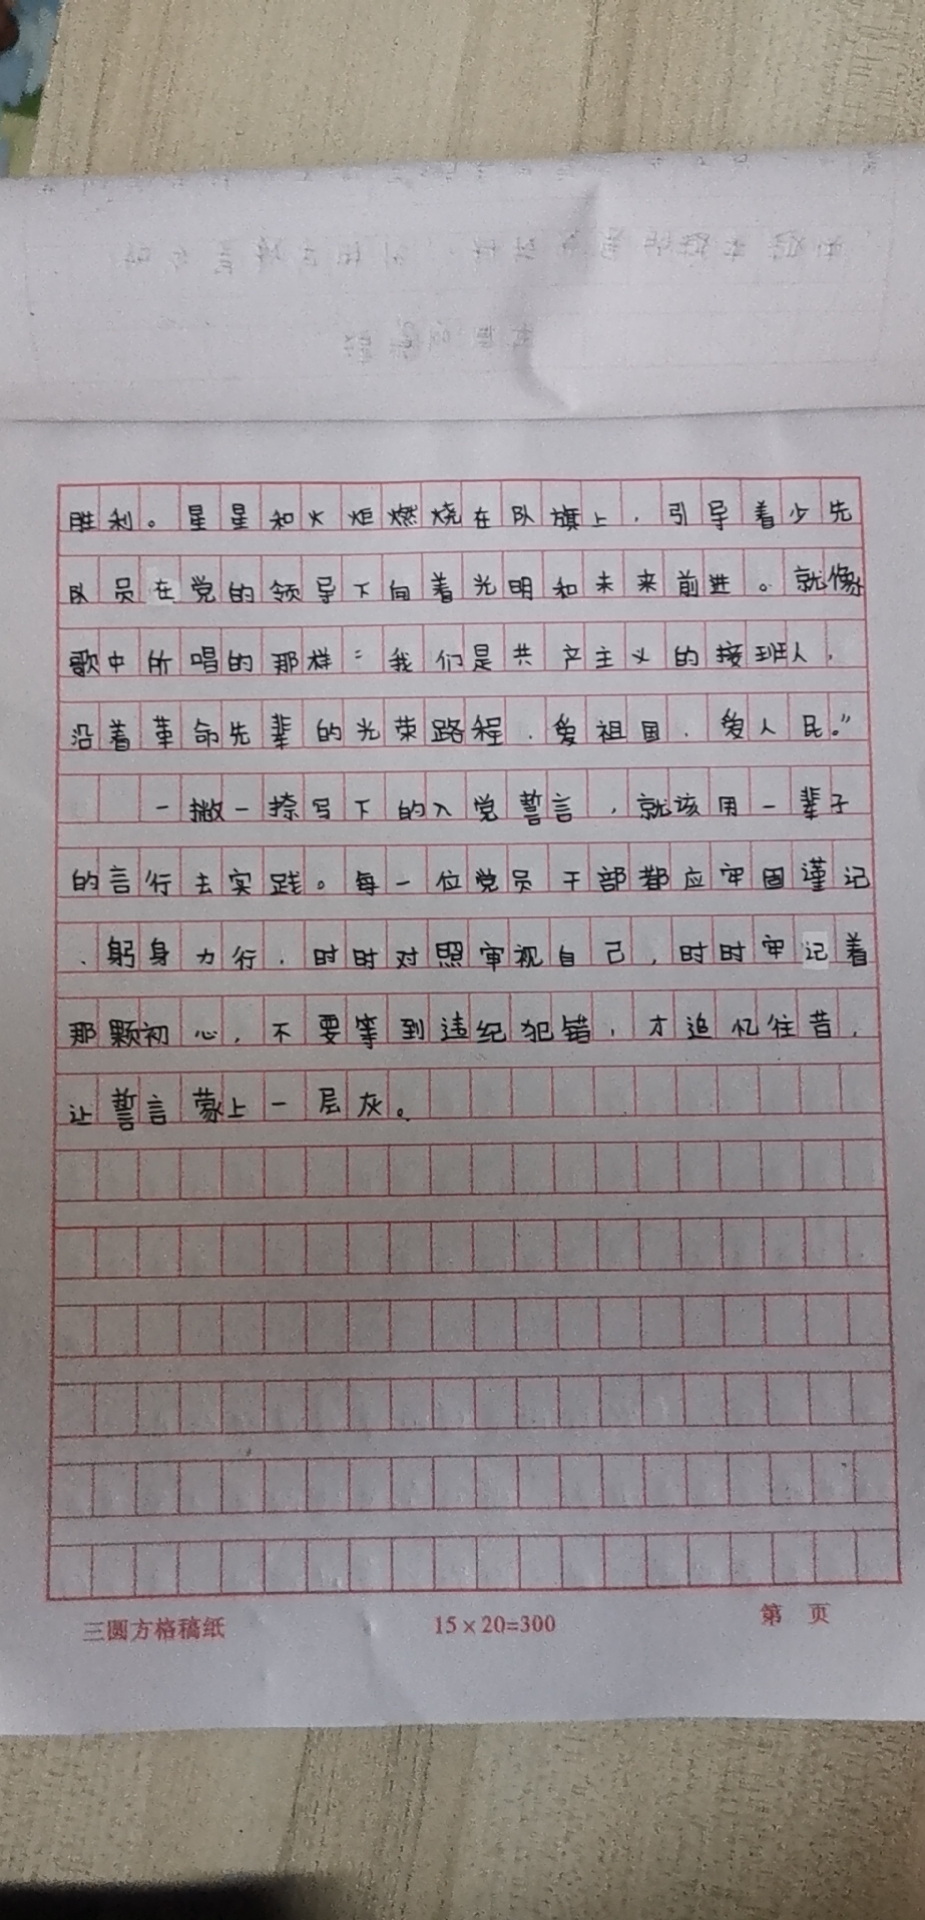 胜利。星星和火炬燃烧在队旗上，引导着少先
队员在党的领导下向着光明和未来前进。就像
歌中所唱的那样：我们是共产主义的接班人，
沿着革命先辈的光荣路程，爱祖国、爱人民。”
一撇一捺写下的入党誓言，就该用一辈子
的言行去实践。每一位党员干部都应牢固谨记
、躬身力行，时时对照审视自己，时时牢记着
那颗初心，不要等到违纪犯错，才追忆往昔，
让誓言蒙上一层灰。
三圆方格稿纸 15×20=300 第 页